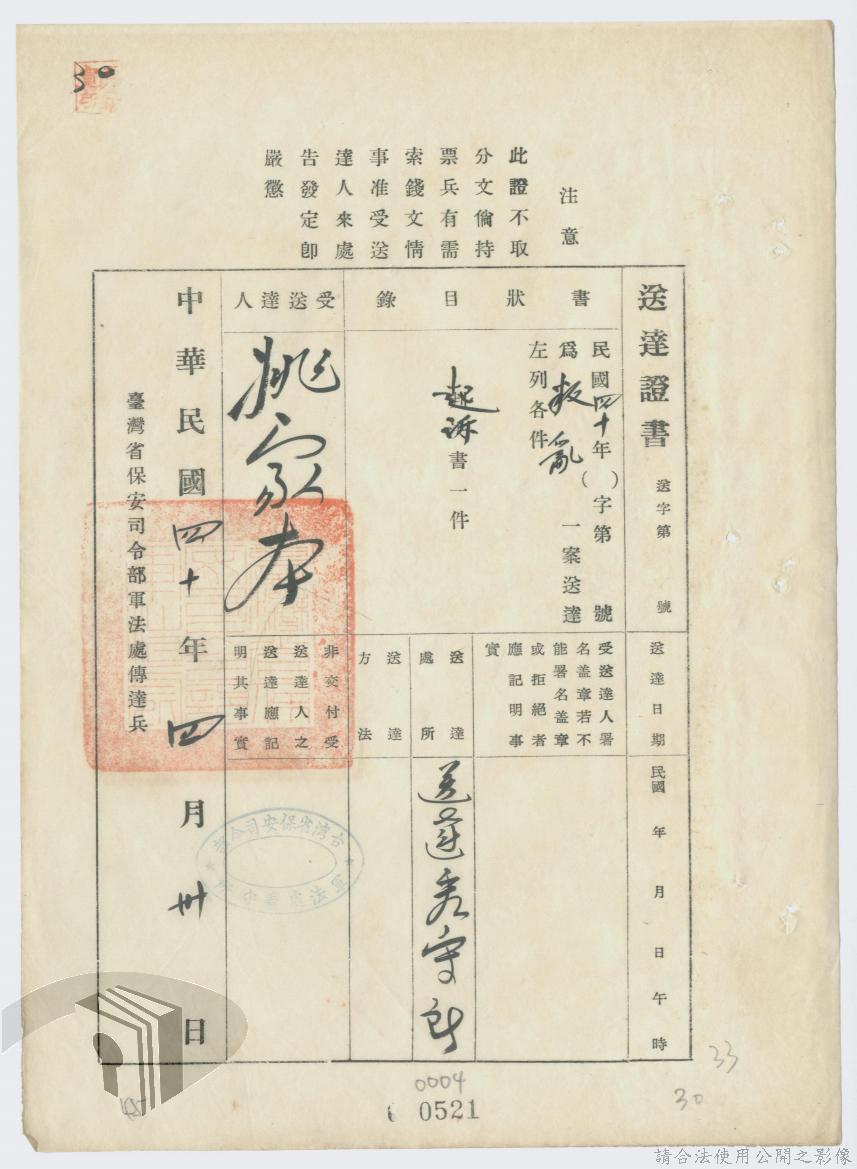 30
注意
此證不取
分文倘持
票兵有需
索錢文情
事准受送
達人來處
告發定卽
嚴懲
送達證書 送字第 號
送達日期
民國 年 月 日 午 時
書狀目錄
民國四十年( )字第 號
爲叛亂 一案送達
左列各件
起訴書一件
受送達人署
名盖章若不
能署名盖章
或拒絕者
應記明事
實
送達處所
送達看守所
送達方法
受送達人
姚家本
非交付受
送達人之
送達應記
明其事實
中華民國四十年四月卅日
臺灣省保安司令部軍法處傳達兵
台湾省保安司令部
軍法處看守所
33
30
0004
0521
請合法使用公開之影像